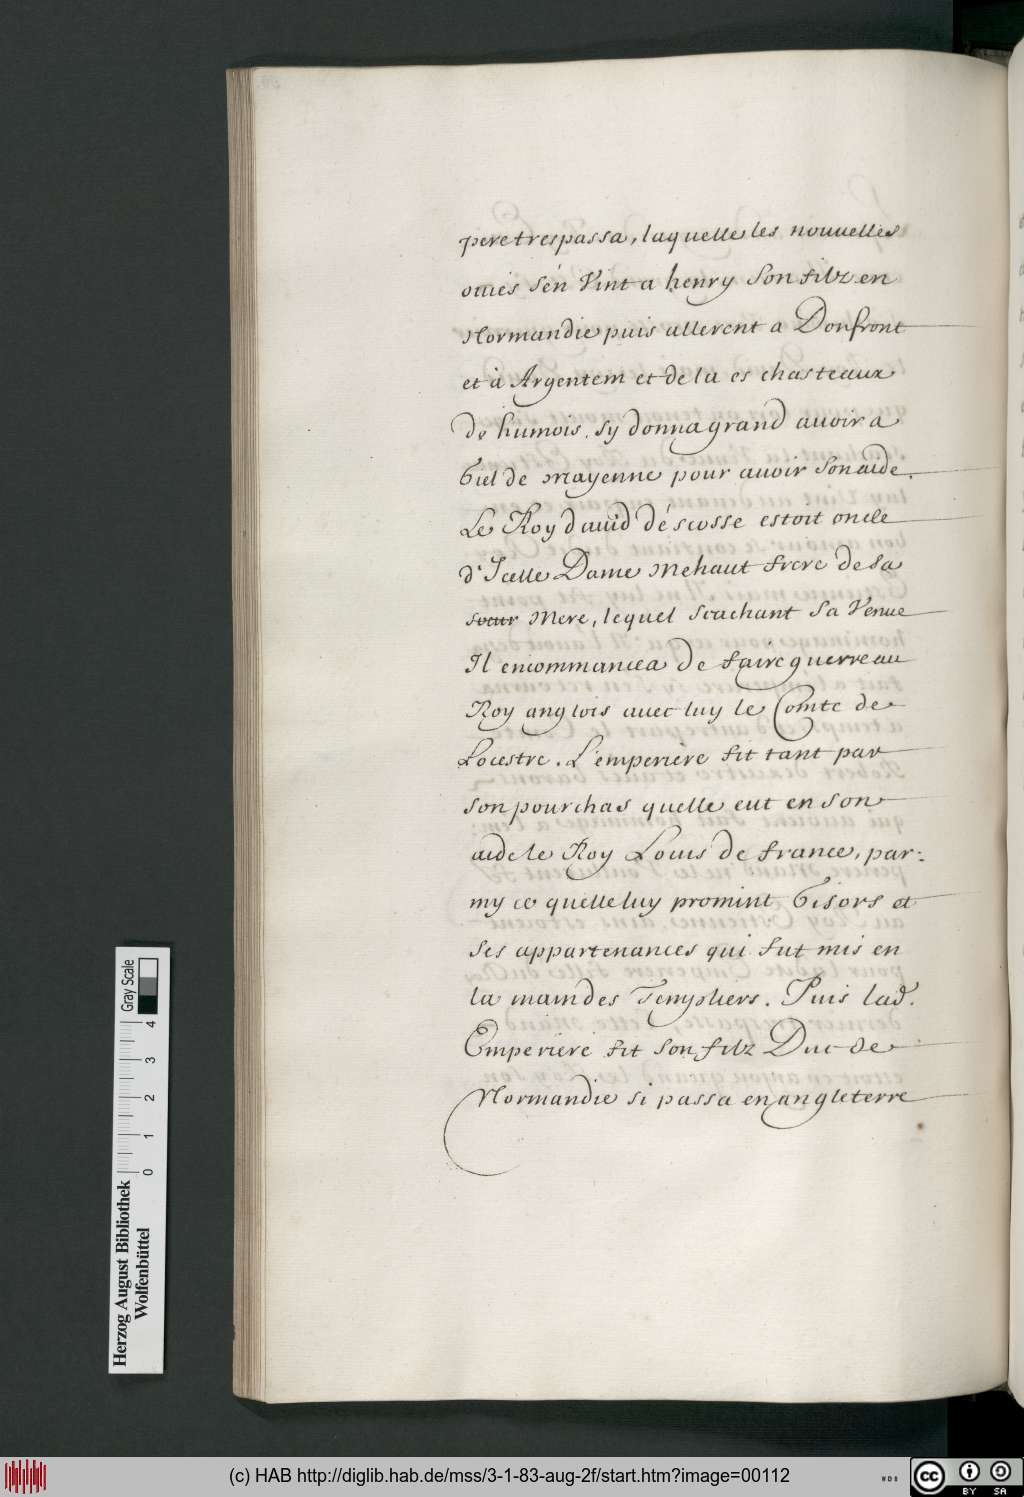 pere trespassa, laquelle les nouuelles
ouiës s'en Vint a henry Son filz en
Normandie puis allerent a Donfront
et à Argentem et de la es chasteaux
de humois, sy donna grand auoir a
Giel de Mayenne pour auoir Son aide.
Le Roy dauid d'escosse estoit oncle
d'Icelle Dame Mehaut frere de sa
soeur Mere, lequel scachant sa Venue
Il encommancea de faire guerre au
Roy anglois auec luy le Comte de
Locestre. L'emperiere fit tant par
son pourchas quelle eut en son
aide le Roy Louis de france, par:
my ce quelle luy promint Gisors et
ses appartenances qui fut mis en
la main des Templiers. Puis lad.
Emperiere fit son filz Duc de
Normandie si passa en angleterre
Herzog August Bibliothek
Wolfenbüttel
0 1 2 3 4
Gray Scale
(c) HAB http://diglib.hab.de/mss/3-1-83-aug-2f/start.htm?image=00112
WDB
cc BY SA